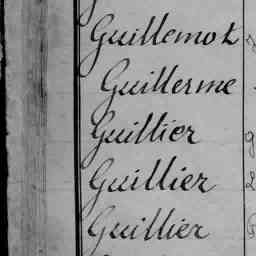 Guillemot
Guillerme
Guillier
Guillier
Guillier